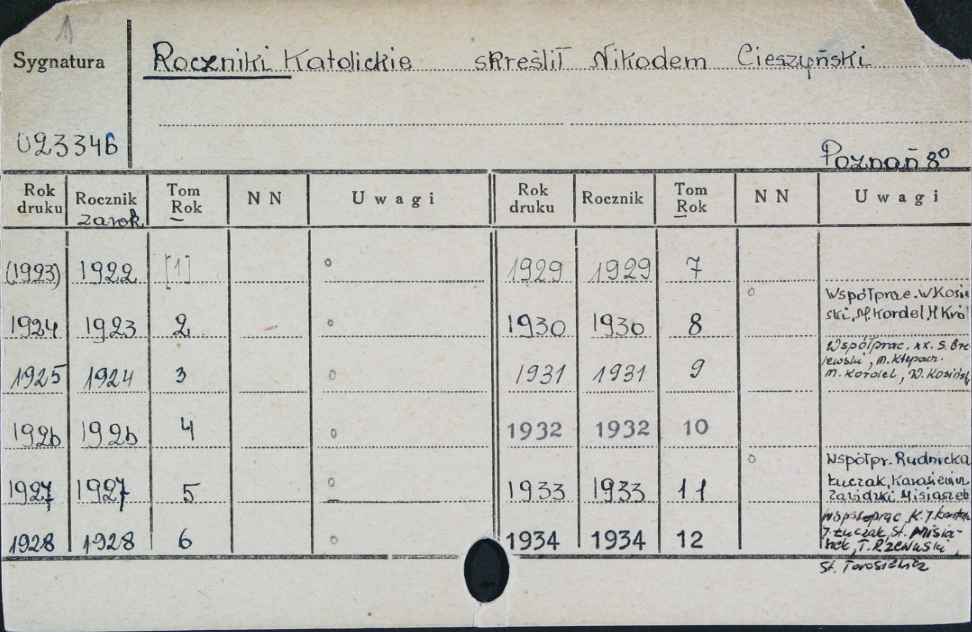 1
Sygnatura
Roczniki Katolickie skreślił Nikodem Cieszyński
U23346
Poznań 8°
Rok druku Rocznik za rok Tom Rok N N U w a g i Rok druku Rocznik Tom Rok N N U w a g i
(1923) 1922 [1] o 1929 1929 7
1924 1923 2 o 1930 1930 8 o Współprac. W Kosiń
ski, M. Kordel, H Król
1925 1924 3 o 1931 1931 9 Współprac. xx. S. Bre
jewski, M. Klepacz.
M. Kordel, W. Kosińsk
1926 1926 4 o 1932 1932 10
1927 1927 5 o 1933 1933 11 o Współpr. Rudnicka
Łuczak,
Misiaszek
1928 1928 6 o 1934 1934 12 Współprac K.
J Łuczak, St. Misia-
szek, T.
St. Tarasiewicz